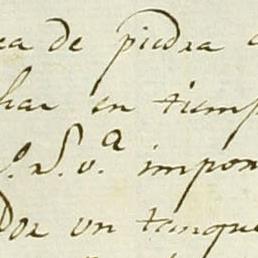 ea de piedra
har en tiemp
S.N.v.a impon
dor un tanque